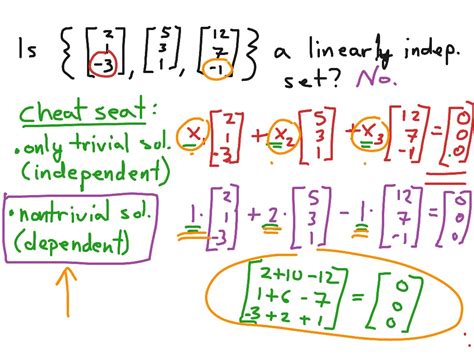 Is { [2 1 -3], [5 3 1], [12 7 -1] } a linearly indep. set? No.
Cheat seat:
• only trivial sol.
(independent)
• nontrivial sol.
(dependent)
x₁ [2 1 -3] + x₂ [5 3 1] + x₃ [12 7 -1] = [0 0 0]
1· [2 1 -3] + 2· [5 3 1] - 1· [12 7 -1] = [0 0 0]
[2+10-12
1+6-7
-3+2+1] = [0 0 0]